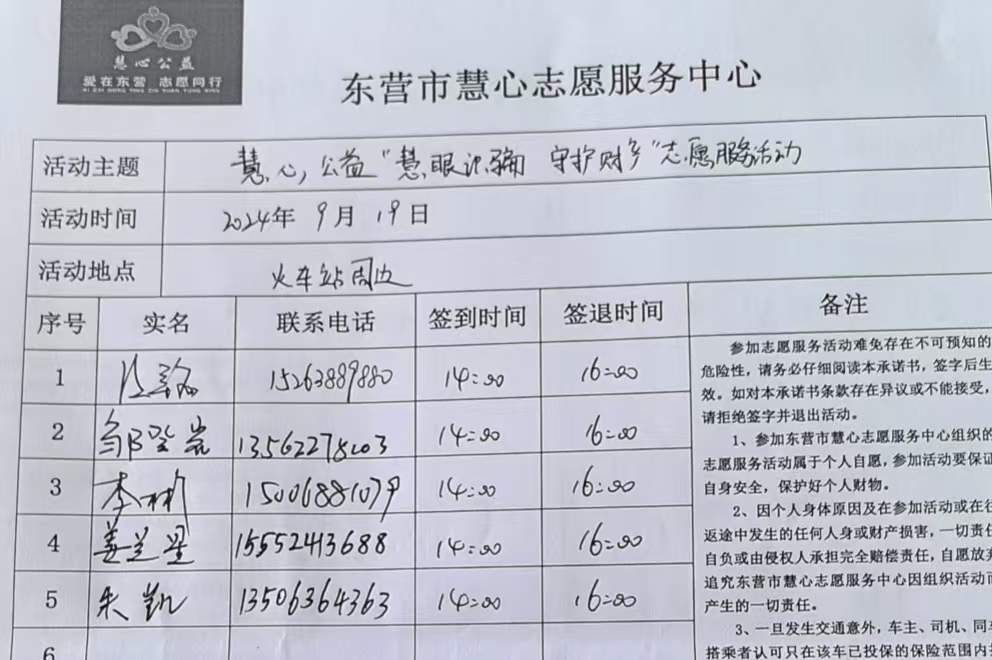 慧心公益
爱在东营 志愿同行
AI ZAI DONG YING ZHI YUAN TONG XING
东营市慧心志愿服务中心
活动主题 慧心公益“慧眼识骗 守护财产”志愿服务活动
活动时间 2024年9月19日
活动地点 火车站周边
序号 实名 联系电话 签到时间 签退时间 备注
1 15263889880 14:00 16:00
2 13562278003 14:00 16:00
3 李彬 15006881079 14:00 16:00
4 姜兰星 15552413688 14:00 16:00
5 朱凯 13506364363 14:00 16:00
6
参加志愿服务活动难免存在不可预知的
危险性，请务必仔细阅读本承诺书，签字后生
效。如对本承诺书条款存在异议或不能接受，
请拒绝签字并退出活动。
1、参加东营市慧心志愿服务中心组织的
志愿服务活动属于个人自愿，参加活动要保证
自身安全，保护好个人财物。
2、因个人身体原因及在参加活动或在往
返途中发生的任何人身或财产损害，一切责任
自负或由侵权人承担完全赔偿责任，自愿放弃
追究东营市慧心志愿服务中心因组织活动而
产生的一切责任。
3、一旦发生交通意外，车主、司机、同车
搭乘者认可只在该车已投保的保险范围内